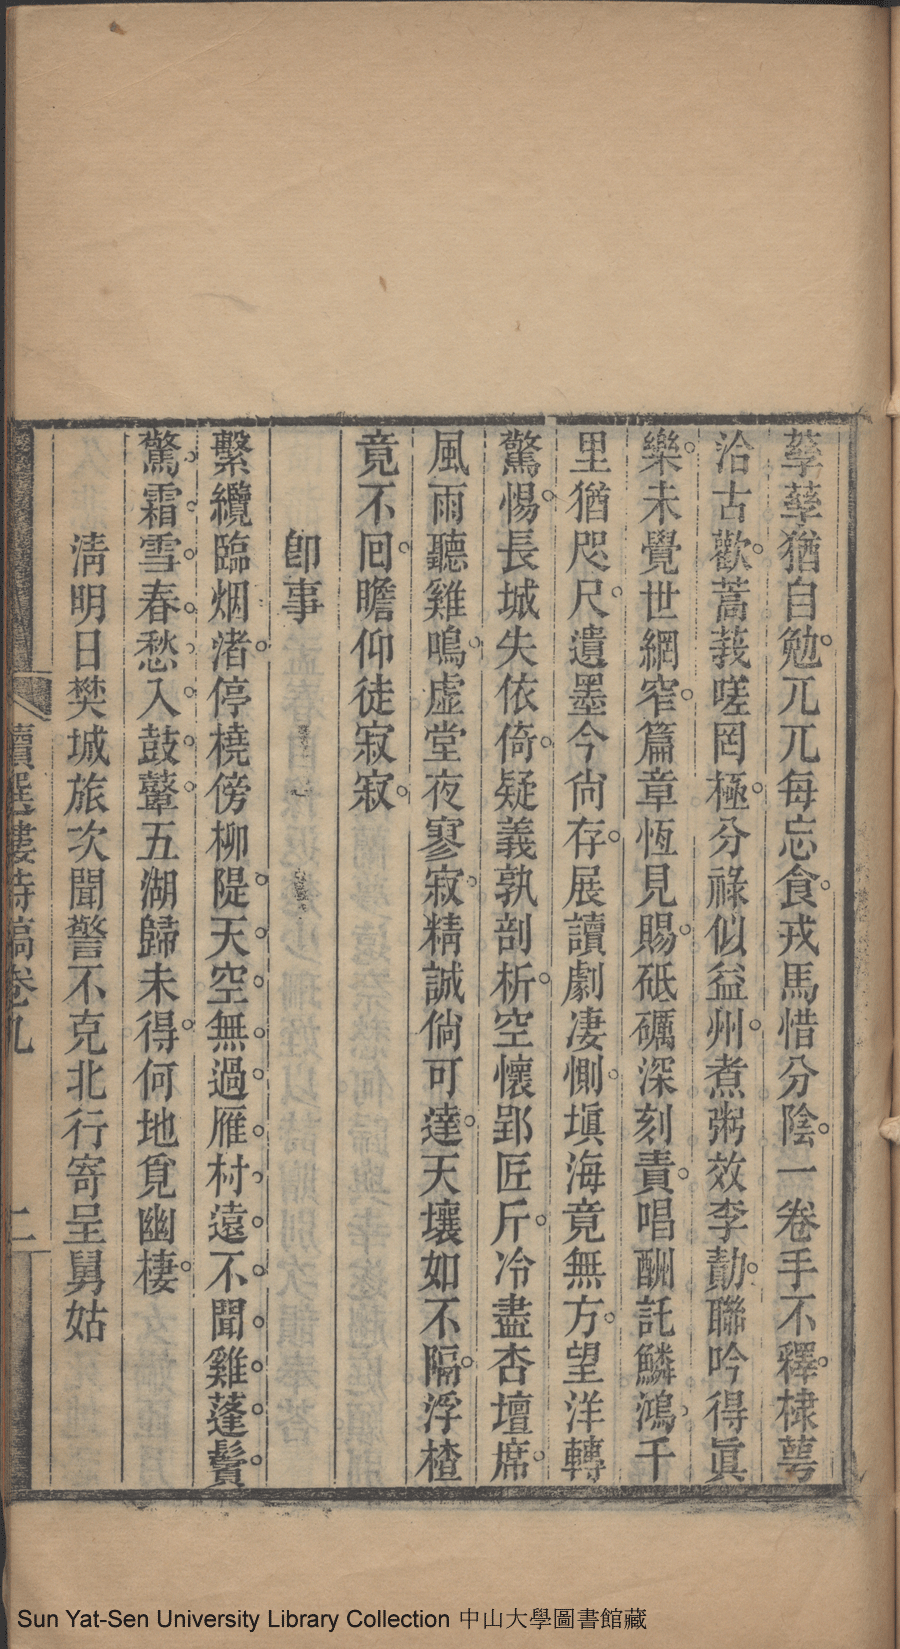 孳孳猶自勉兀兀每忘食戎馬惜分陰一卷手不釋棣萼
洽古歡蒿莪嗟罔極分祿似益州煮粥效李勣聯吟得眞
樂未覺世網窄篇章恆見賜砥礪深刻責唱酬託鱗鴻千
里猶咫尺遺墨今尙存展讀劇凄惻塡海竟無方望洋轉
驚惕長城失依倚疑義孰剖析空懷郢匠斤冷盡杏壇席
風雨聽雞鳴虛堂夜寥寂精誠倘可達天壤如不隔浮楂
竟不回瞻仰徒寂寂
卽事
繫纜臨烟渚停橈傍柳隄天空無過雁村遠不聞雞蓬鬢
驚霜雪春愁入鼓鼙五湖歸未得何地覓幽棲
淸明日樊城旅次聞警不克北行寄呈舅姑
讀選樓詩稿卷九
二
Sun Yat-Sen University Library Collection 中山大學圖書館藏